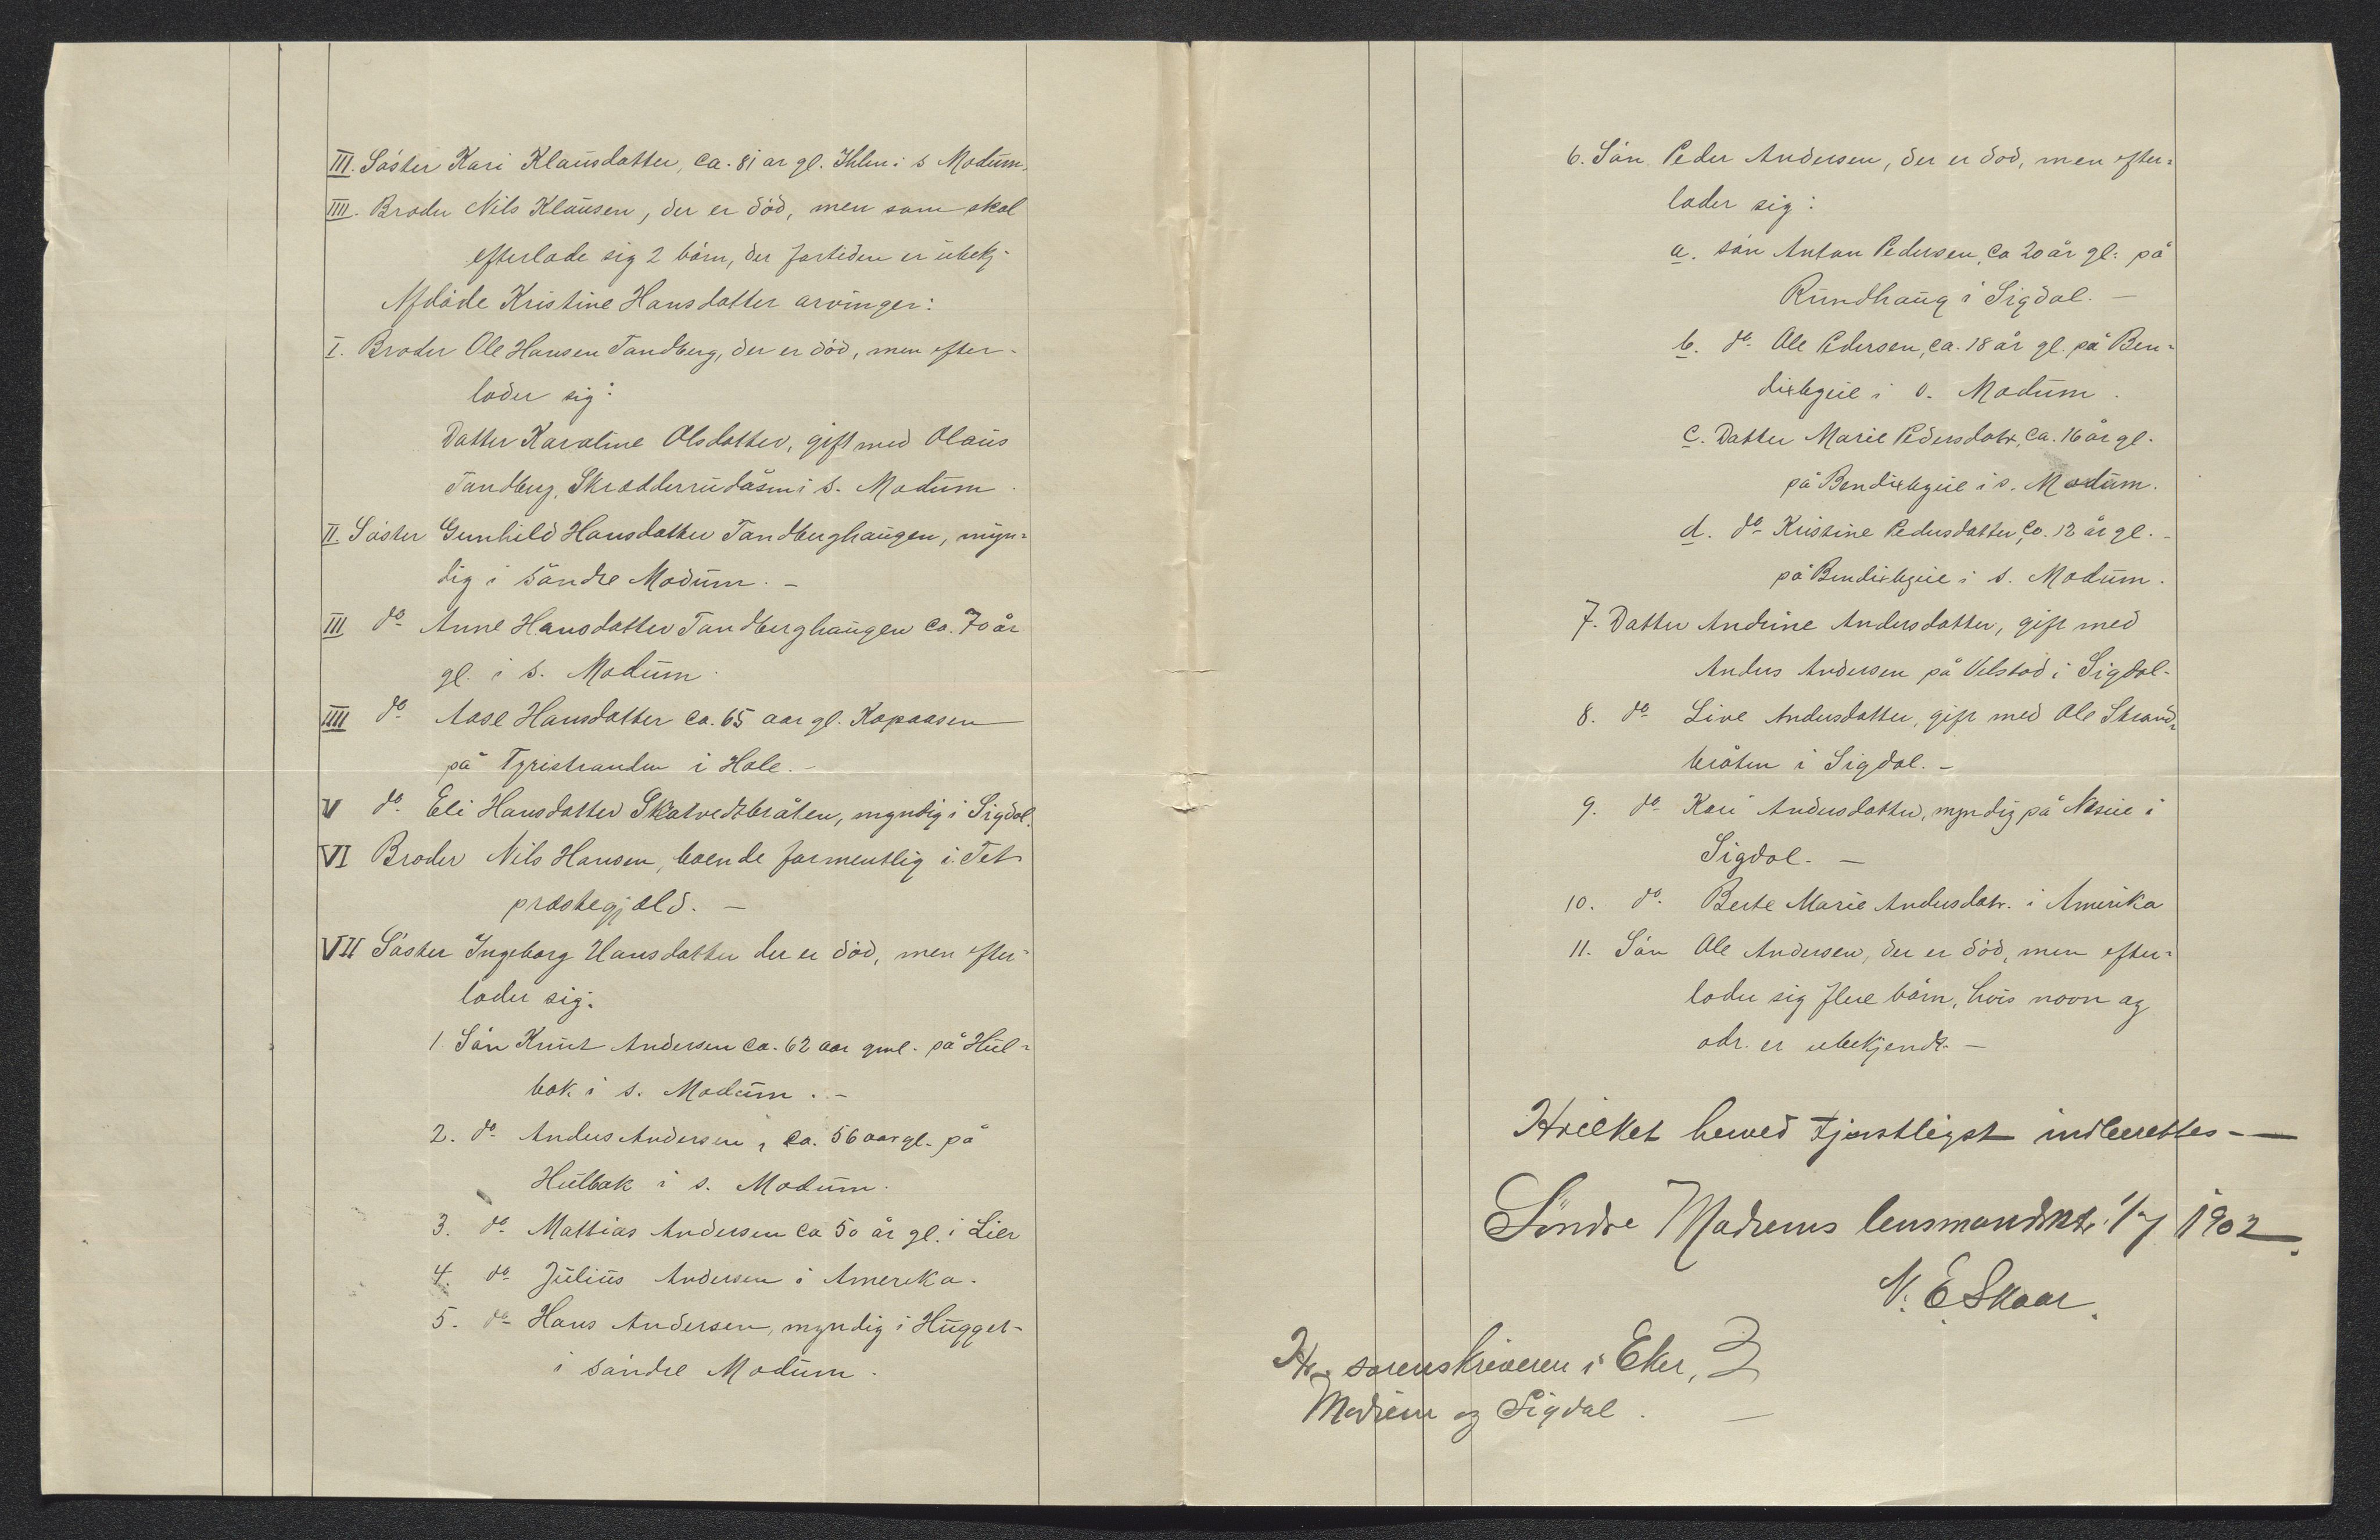 III. Söster Kari Klausdatter, ca. 81 ar gl. Ihlen i s Modum.
IIII. Broder Nils Klausen, der er död, men som skal
efterlade sig 2 börn, der fortiden er ubekj-
Afdöde Kristine Hansdatter arvinger:
I. Broder Ole Hansen Tandberg, der er död, men efter-
lader sig:
Datter Karoline Olsdatter, gift med Olaus
Tandberg, Skrædderrudåsen i s. Modum.
II. Söster Gunhild Hansdatter Tandberghaugen, myn=
dig i söndre Modum. -
III do Anne Hansdatter Tandberghaugen ca. 70 år
gl. i s. Modum.
IIII do Aase Hansdatter ca. 65 aar gl. Kopaasen
på Tyristranden i Hole. -
V do. Eli Hansdatter Skatvedtbråten, myndig i Sigdal.
VI Broder Nils Hansen, boende formentlig i
præstegjæld. -
VII Söster Ingeborg Hansdatter der er död, men efter-
lader sig:
1 Sön Knut Andersen ca. 62 aar gml. på Hul=
bak i s. Modum. -
2. do Anders Andersen, ca. 56 aar gl. på
Hulbak i s. Modum.
3. do Mattias Andersen ca 50 år gl. i Lier
4. do Julius Andersen i Amerika.
5. do Hans Andersen, myndig i Hugget-
i söndre Modum.
6. Sön Peder Andersen, der er död, men efter=
lader sig:
a. sön Anton Pedersen, ca 20 år gl. på
Rundhaug i Sigdal. -
b. do Ole Pedersen, ca. 18 år gl. på Ben=
dixbyeie i s. Modum.
c. Datter Marie Pedersdatr, ca. 16 år gl.
på Bendixbyeie i s. Modum.
d. do Kristine Pedersdatter, ca. 12 år gl. -
på Bendixbyeie i s. Modum.
7. Datter Andrine Andersdatter, gift med
Anders Andersen på Velstad i Sigdal-
8. do Live Andersdatter, gift med Ole Strand=
bråten i Sigdal. -
9. do Kari Andersdatter, myndig på i
Sigdal. -
10. do. Berte Marie Andersdatr. i Amerika
11. Sön Ole Andersen, der er död, men efter=
lader sig flere börn, hvis navn og
adr. er ubekjendt. -
Hvilket herved tjenstligst indberettes -
Söndre Modums lensmandskt. 1/7 1902.
N. E. Skaar.
Hr. sorenskriveren i Eker,
Modum og Sigdal. -